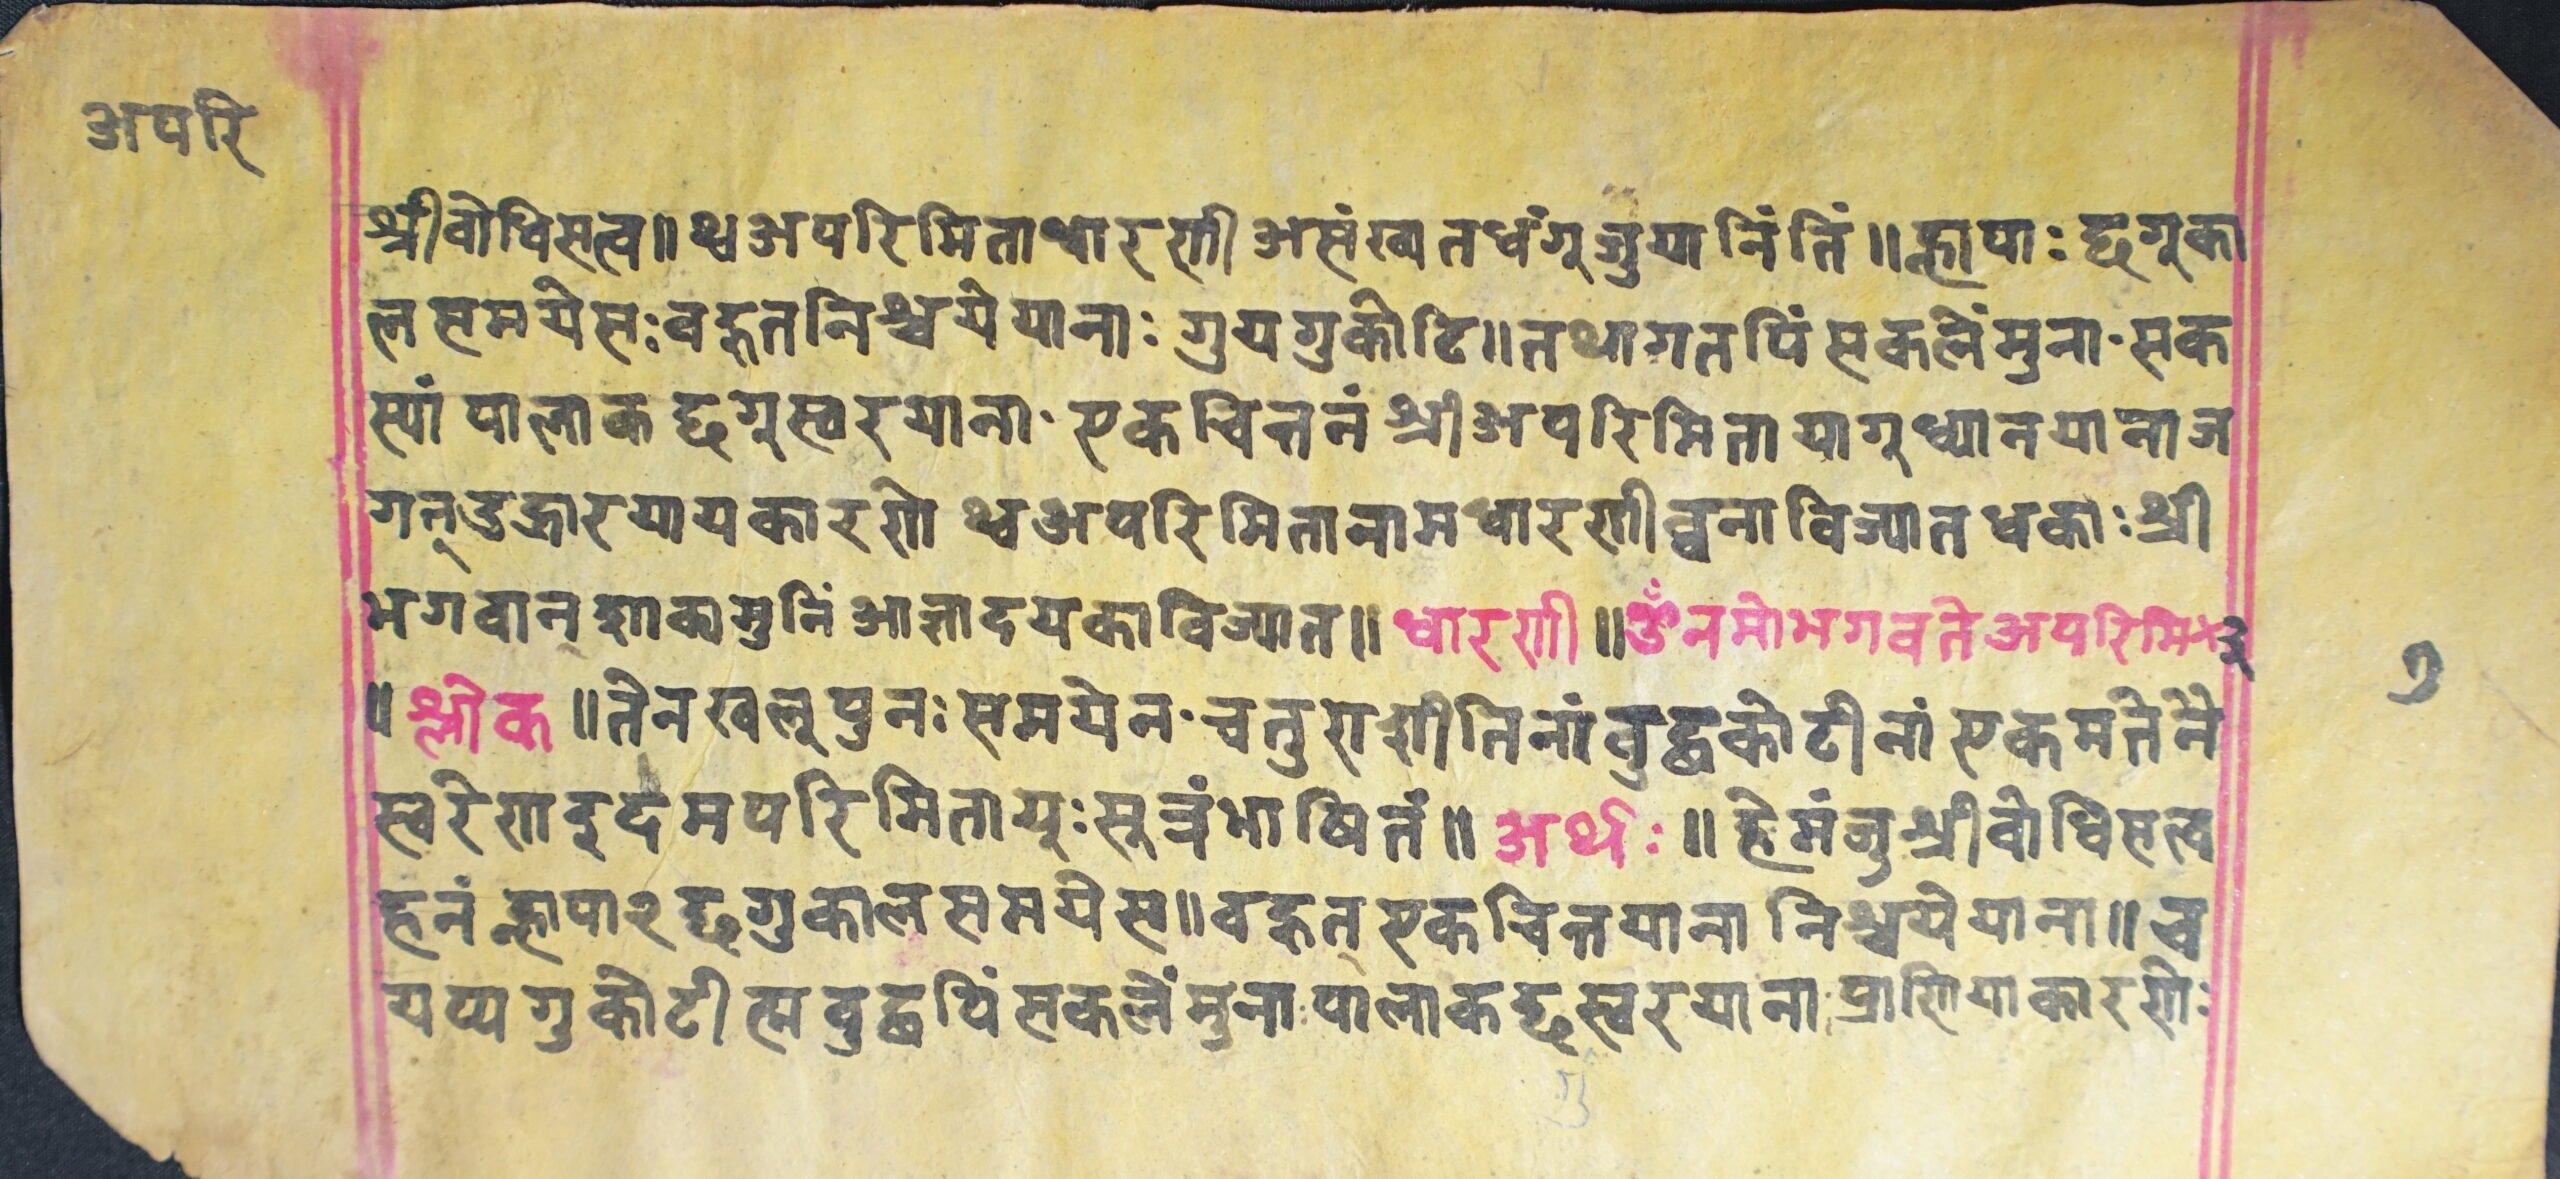 अपरि
श्रीवोधिसत्व॥ थ्व अपरिमिताधारणी असंख्यतधंगू जुया निंतिं॥ ह्लापाः छगूका
लसमयेसः वहतनिश्चये यानाः गुयगुकोटि॥ तथागतपिं सकलें मुना॰ सक
स्यां पालाक छगूस्वर याना॰ एकचित्तनं श्रीअपरिमितायागु ध्यान याना ज
गत् उद्धारयाय कारणे थ्व अपरिमितानामधारणी ब्वना विज्यात धकाः श्री
भगवान् शाक्यमुनिं आज्ञादयका विज्यात॥ धारणी॥ ॐ नमो भगवते अपरिमि
॥ श्लोक॥ तेन खलू पुनः समयेन॰ चतुराशीतिनां वुद्धकोटीनां एकमतेनै
स्वरेण इदमपरिमितायूः सूत्रंभाषितं॥ अर्थः॥ हे मंजुश्रीवोधिसत्व
हनं ह्लापा२ छगुकालसमयेस॥ वहत् एकचित्तयाना निश्चये याना॥ च
यप्यगुकोटी त्म वुद्धपिं सकलें मुना पालाक छस्वरयाना प्राणियाकारणेः
७